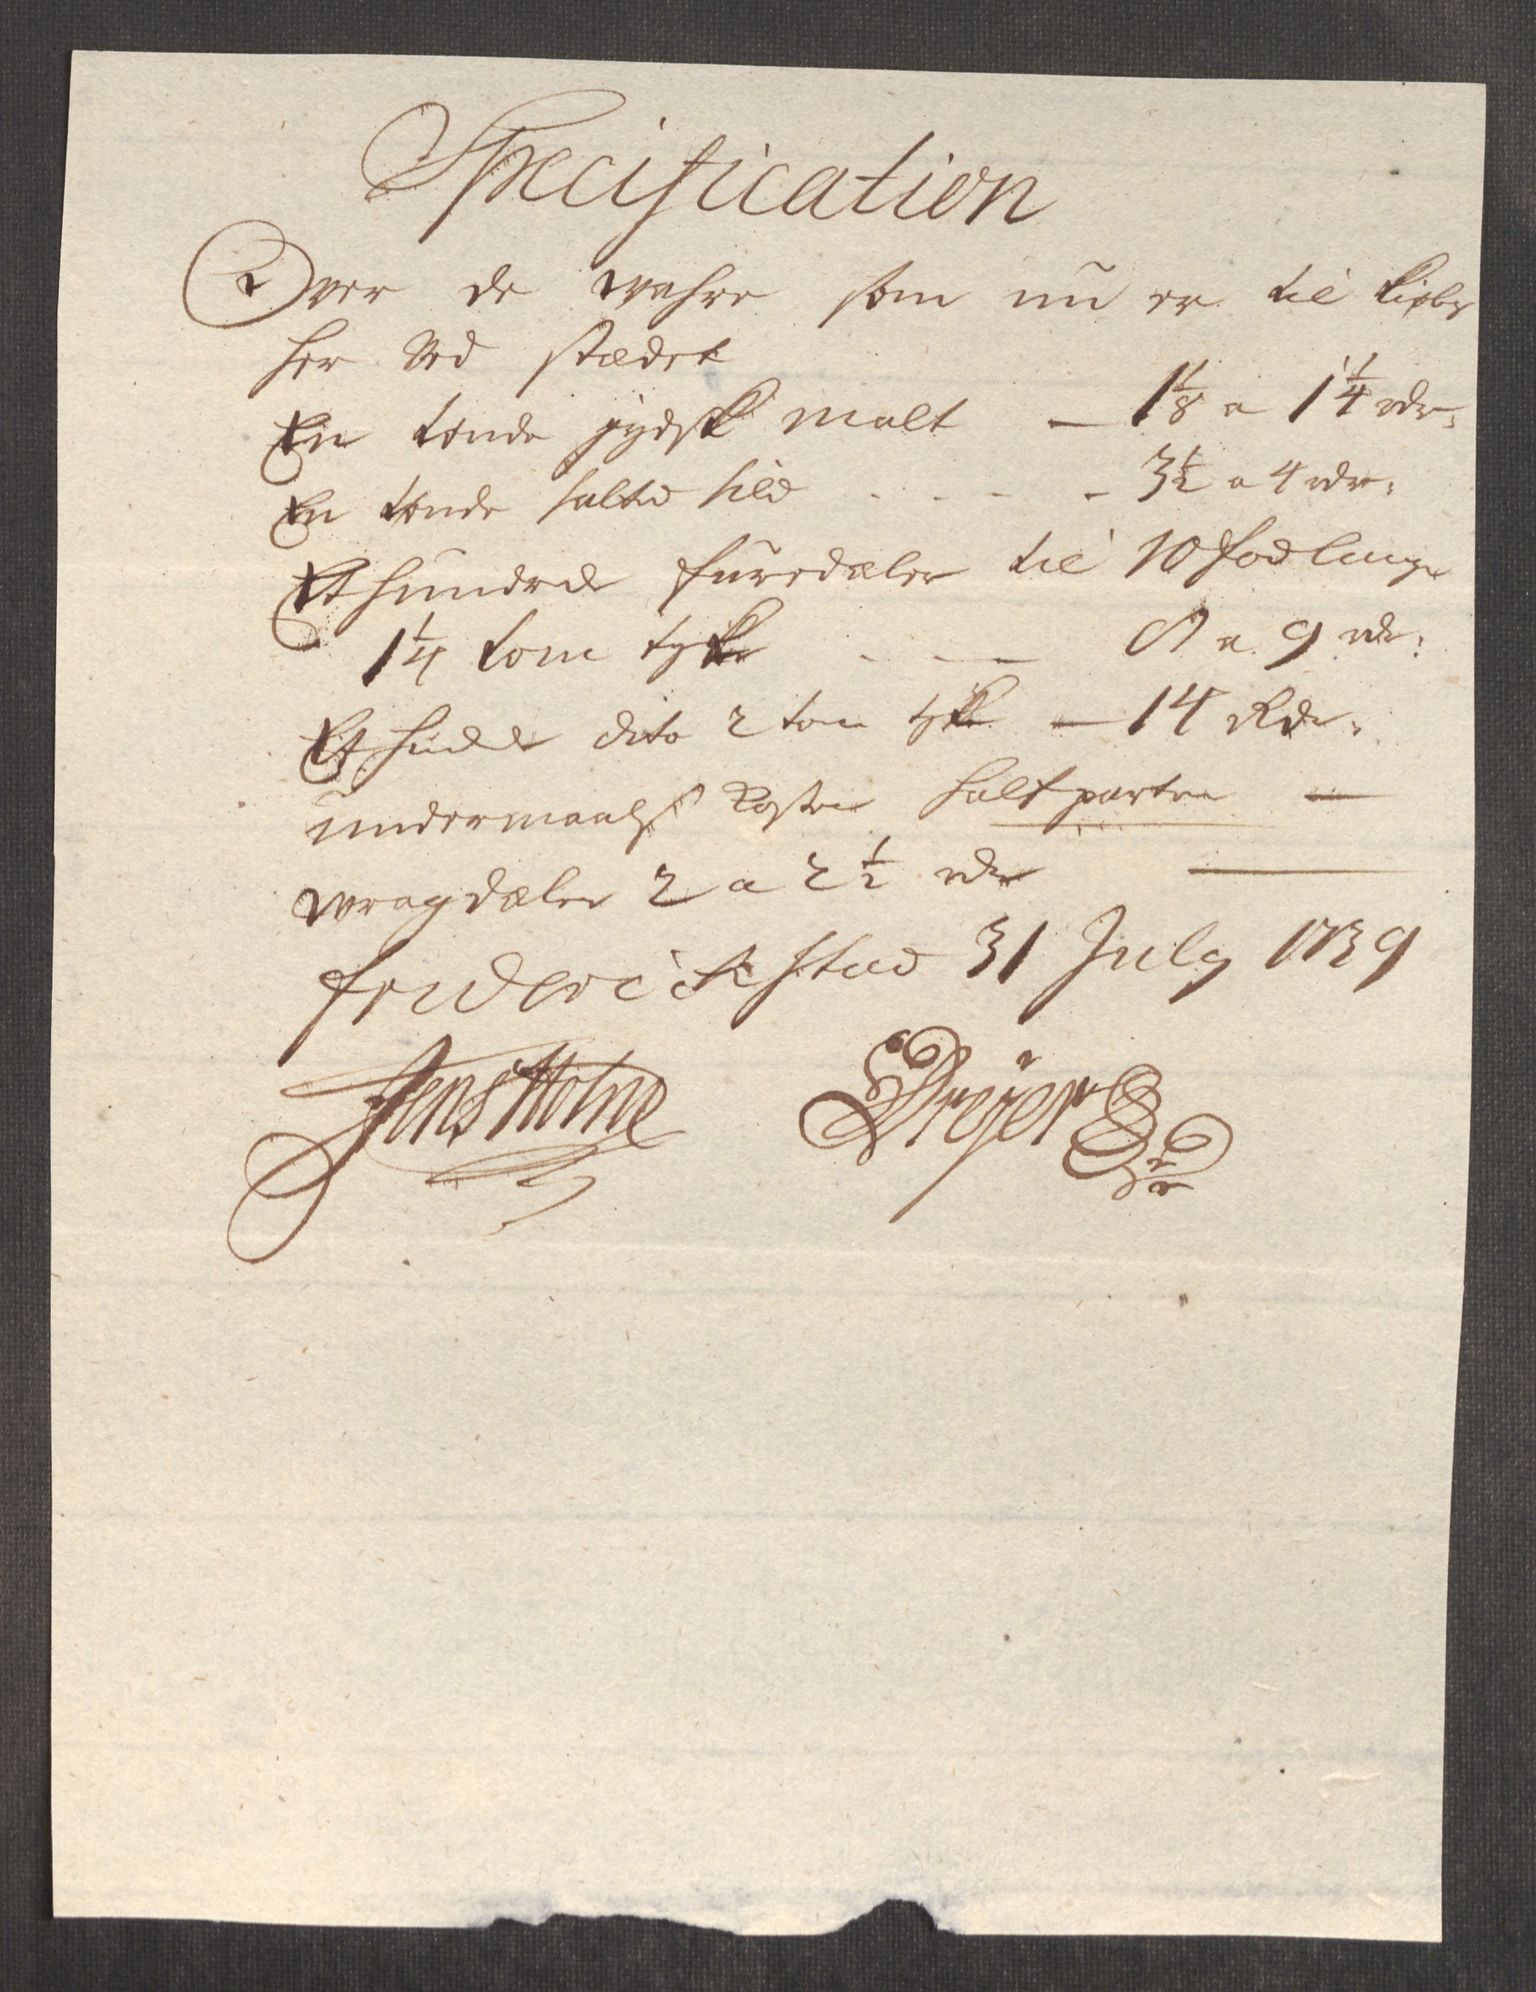 Specification
Over de wahre som nu er til kiøbs
her ved stædet
En tønde jydsk malt — 1⅛ a 1¼ rdr:
En tønde salted sild . . . - 3½ a 4 rdr:
Et hundred furedæler til 10 fod lange
1¼ tom tyke . . — 8 a 9 rdr:
Et hundred dito 2 tom tyke — 14 Rdr:
undermaals Koster halfparten —
wragdæler 2 a 2½ rdr —
friderichstad 31 July 1739
Jens Holme Dreÿer